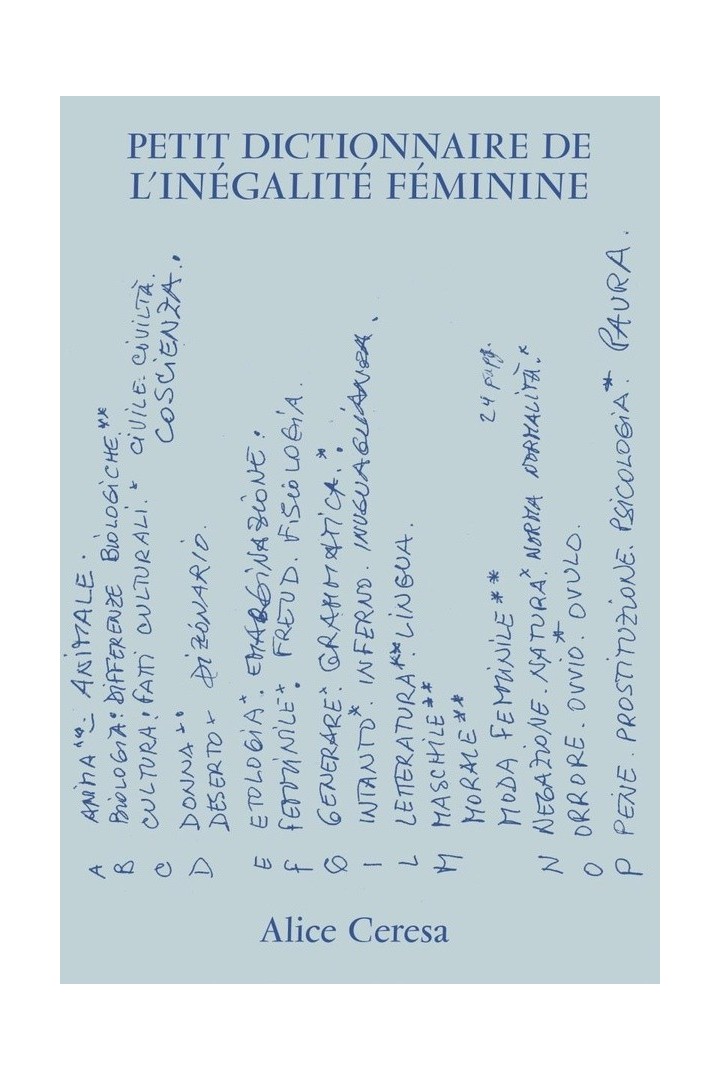 PETIT DICTIONNAIRE DE
L'INÉGALITÉ FÉMININE
A ANIMA**. ANIMALE.
B BIOLOGIA. DIFFERENZE BIOLOGICHE**
C CULTURA. FATTI CULTURALI.* CIVILE. CIVILTÀ.
COSCIENZA.
D DONNA**
DESERTO* DIZIONARIO.
E ETOLOGIA*. EMARGINAZIONE.
F FEMMINILE*. FREUD. FISIOLOGIA.
G GENERARE*. GRAMMATICA.*
I INTANTO*. INFERNO. INUGUAGLIANZA.
L LETTERATURA** LINGUA.
M MASCHILE**
MORALE**
MODA FEMMINILE** 24 pagg.
N NEGAZIONE. NATURA* NORMA NORMALITÀ.*
O ORRORE. OVVIO*. OVULO.
P PENE. PROSTITUZIONE. PSICOLOGIA.* PAURA.
Alice Ceresa